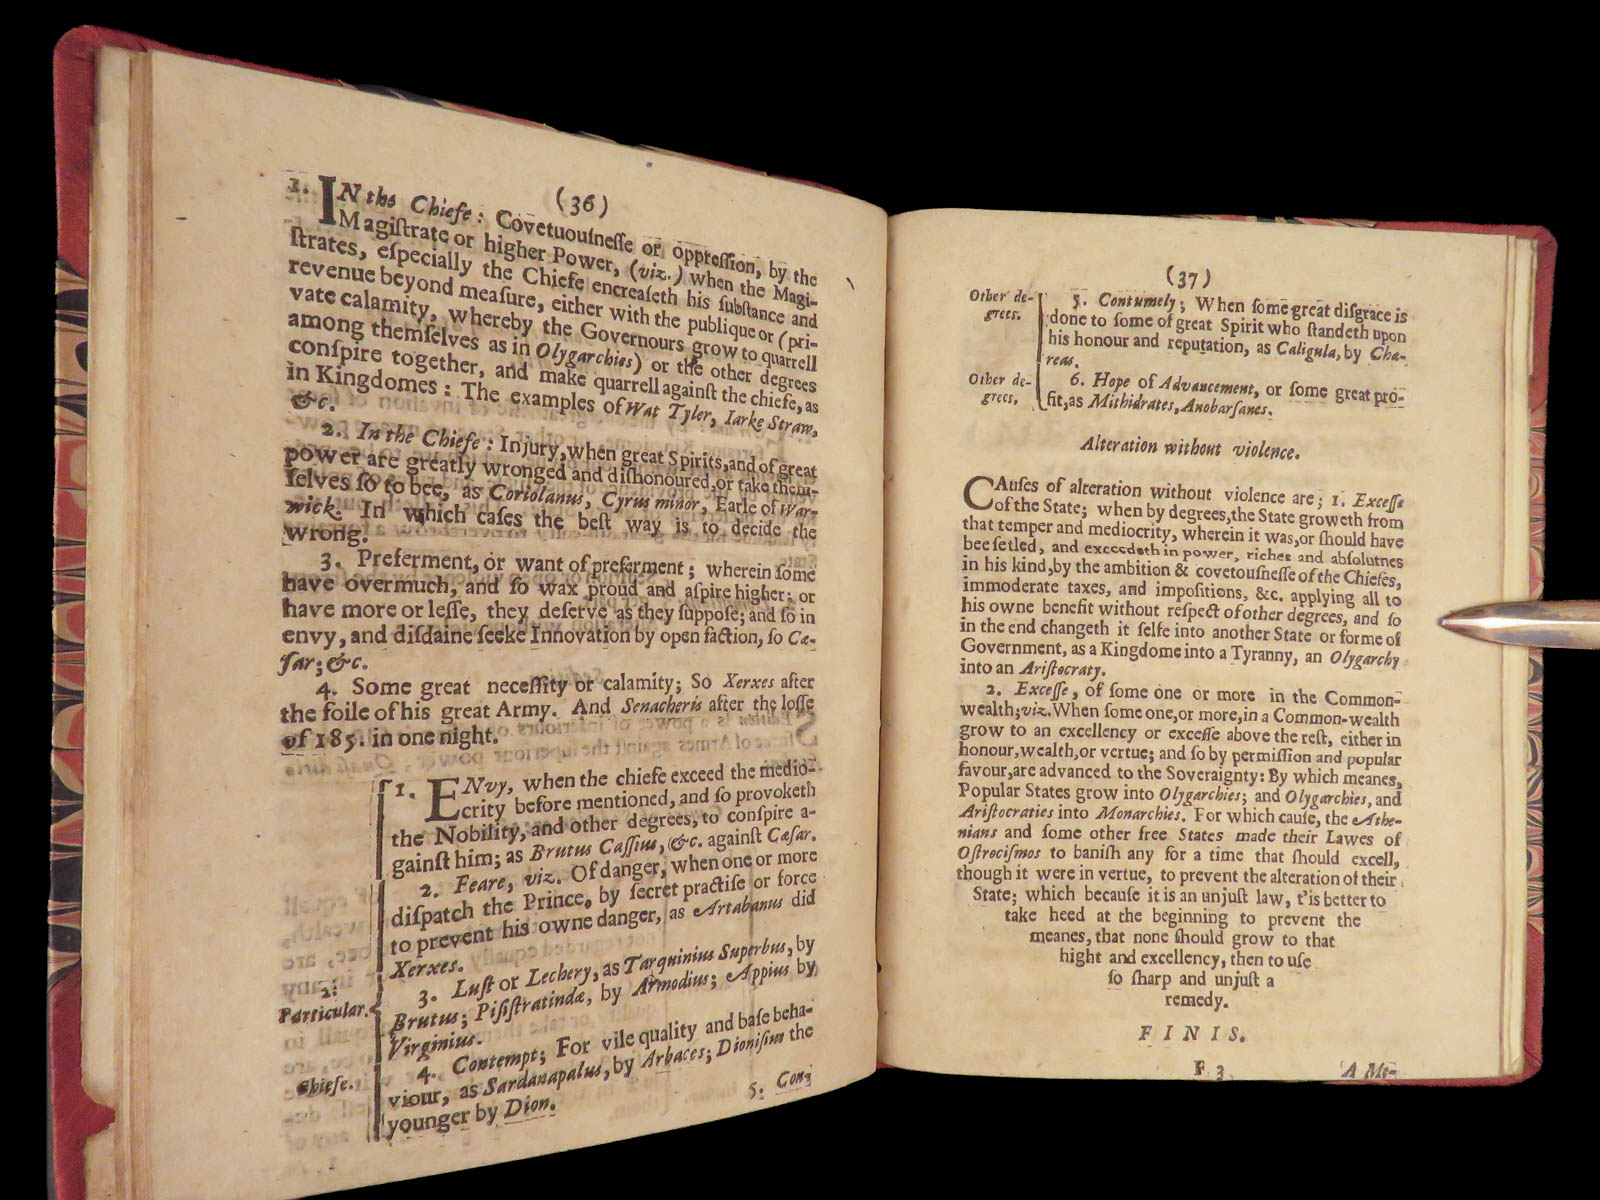 (36)
1. IN the Chiefe: Covetuouſneſſe or oppreſſion, by the
Magiſtrate or higher Power, (viz.) when the Magi-
ſtrates, eſpecially the Chiefe encreaſeth his ſubſtance and
revenue beyond meaſure, either with the publique or (pri-
vate calamity, whereby the Governours grow to quarrell
among themſelves as in Olygarchies) or the other degrees
conſpire together, and make quarrell againſt the chiefe, as
in Kingdomes: The examples of Wat Tyler, Iarke Straw,
&c.
2. In the Chiefe: Injury, when great Spirits, and of great
power are greatly wronged and diſhonoured, or take them-
ſelves ſo to bee, as Coriolanus, Cyrus minor, Earle of War-
wick. In which caſes the beſt way is to decide the
wrong.
3. Preferment, or want of preferment; wherein ſome
have overmuch, and ſo wax proud and aſpire higher: or
have more or leſſe, they deſerve as they ſuppoſe; and ſo in
envy, and diſdaine ſeeke Innovation by open faction, ſo Cæ-
ſar; &c.
4. Some great neceſſity or calamity; So Xerxes after
the foile of his great Army. And Senacheris after the loſſe
of 185. in one night.
1. ENvy, when the chiefe exceed the medio-
crity before mentioned, and ſo provoketh
the Nobility, and other degrees, to conſpire a-
gainſt him; as Brutus Caſſius, &c. againſt Cæſar.
2. Feare, viz. Of danger, when one or more
diſpatch the Prince, by ſecret practiſe or force
to prevent his owne danger, as Artabanus did
Xerxes.
3. Luſt or Lechery, as Tarquinius Superbus, by
Brutus; Piſiſtratindæ, by Armodius; Appius by
Virginius.
2.
Particular.
4. Contempt; For vile quality and baſe beha-
viour, as Sardanapalus, by Arbaces; Dioniſius the
younger by Dion.
Chiefe.
5. Con-
(37)
Other de-
grees.
5. Contumely; When ſome great diſgrace is
done to ſome of great Spirit who ſtandeth upon
his honour and reputation, as Caligula, by Che-
reas.
Other de-
grees.
6. Hope of Advancement, or ſome great pro-
fit, as Mithidrates, Anobarſanes.
Alteration without violence.
CAuſes of alteration without violence are; 1. Exceſſe
of the State; when by degrees, the State groweth from
that temper and mediocrity, wherein it was, or ſhould have
bee ſetled, and exceedeth in power, riches and abſolutnes
in his kind, by the ambition & covetouſneſſe of the Chiefes,
immoderate taxes, and impoſitions, &c. applying all to
his owne benefit without reſpect of other degrees, and ſo
in the end changeth it ſelfe into another State or forme of
Government, as a Kingdome into a Tyranny, an Olygarchy
into an Ariſtocraty.
2. Exceſſe, of ſome one or more in the Common-
wealth; viz. When ſome one, or more, in a Common-wealth
grow to an excellency or exceſſe above the reſt, either in
honour, wealth, or vertue; and ſo by permiſſion and popular
favour, are advanced to the Soveraignty: By which meanes,
Popular States grow into Olygarchies; and Olygarchies, and
Ariſtocraties into Monarchies. For which cauſe, the Athe-
nians and ſome other free States made their Lawes of
Oſtrociſmos to baniſh any for a time that ſhould excell,
though it were in vertue, to prevent the alteration of their
State; which becauſe it is an unjuſt law, t'is better to
take heed at the beginning to prevent the
meanes, that none ſhould grow to that
hight and excellency, then to uſe
ſo ſharp and unjuſt a
remedy.
FINIS.
F 3
A Me-